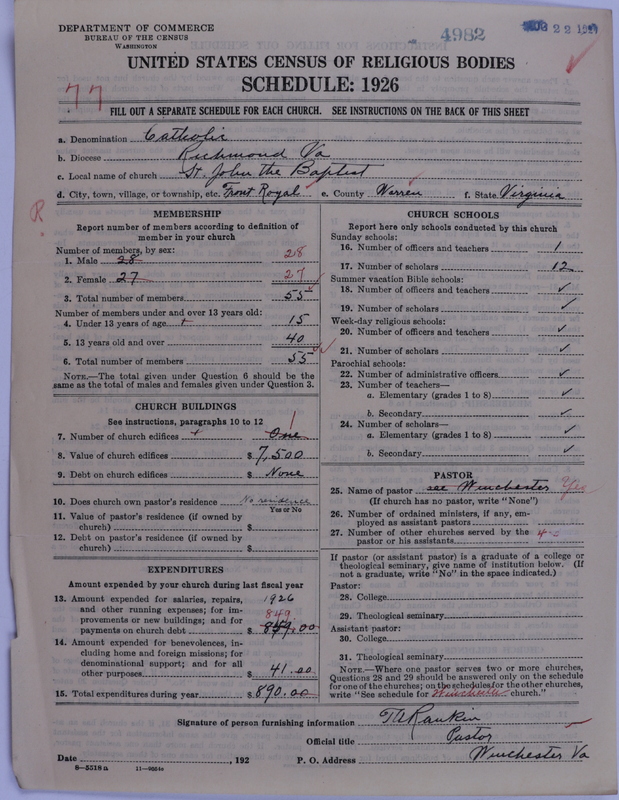 DEPARTMENT OF COMMERCE
BUREAU OF THE CENSUS
WASHINGTON
4982
AUG 22 1927
UNITED STATES CENSUS OF RELIGIOUS BODIES
SCHEDULE: 1926
77
FILL OUT A SEPARATE SCHEDULE FOR EACH CHURCH. SEE INSTRUCTIONS ON THE BACK OF THIS SHEET
a. Denomination Catholic
b. Diocese Richmond Va
c. Local name of church St. John the Baptist
d. City, town, village, or township, etc. Front Royal e. County Warren f. State Virginia
R
MEMBERSHIP
Report number of members according to definition of
member in your church
Number of members, by sex:
1. Male 28 28
2. Female 27 27
3. Total number of members 55
Number of members under and over 13 years old:
4. Under 13 years of age 15
5. 13 years old and over 40
6. Total number of members 55
NOTE.—The total given under Question 6 should be
same as the total of males and females given under Question 3.
CHURCH BUILDINGS
See instructions, paragraphs 10 to 12
7. Number of church edifices One 1
8. Value of church edifices $ 7,500
9. Debt on church edifices $ None
10. Does church own pastor's residence No residence
Yes or No
11. Value of pastor's residence (if owned by
church) $
12. Debt on pastor's residence (if owned by
church) $
EXPENDITURES
Amount expended by your church during last fiscal year
13. Amount expended for salaries, repairs, 1926
and other running expenses; for im-
provements or new buildings; and for 849
payments on church debt $ 859.00
14. Amount expended for benevolences, in-
cluding home and foreign missions; for
denominational support; and for all
other purposes $ 41.00
15. Total expenditures during year $ 890.00
CHURCH SCHOOLS
Report here only schools conducted by this church
Sunday schools:
16. Number of officers and teachers 1
17. Number of scholars 12
Summer vacation Bible schools:
18. Number of officers and teachers ✓
19. Number of scholars ✓
Week-day religious schools:
20. Number of officers and teachers ✓
21. Number of scholars ✓
Parochial schools:
22. Number of administrative officers ✓
23. Number of teachers—
a. Elementary (grades 1 to 8) ✓
b. Secondary ✓
24. Number of scholars—
a. Elementary (grades 1 to 8) ✓
b. Secondary ✓
PASTOR
25. Name of pastor see Winchester Yes
(If church has no pastor, write "None")
26. Number of ordained ministers, if any, em-
ployed as assistant pastors
27. Number of other churches served by the
pastor or his assistants 4
If pastor (or assistant pastor) is a graduate of a college or
theological seminary, give name of institution below. (If
not a graduate, write "No" in the space indicated.)
Pastor:
28. College
29. Theological seminary
Assistant pastor:
30. College
31. Theological seminary
NOTE.—Where one pastor serves two or more churches,
Questions 28 and 29 should be answered only on the schedule
for one of the churches; on the schedules for the other churches,
write "See schedule for Winchester church."
Signature of person furnishing information Rankin
Official title Pastor
Date , 192 P. O. Address Winchester Va
8—5518 a